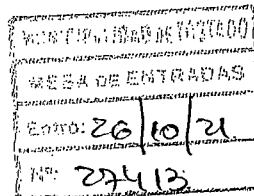 MUNICIPALIDAD DE
MESA DE ENTRADAS
Entró: 26/10/21
Nº: 27413